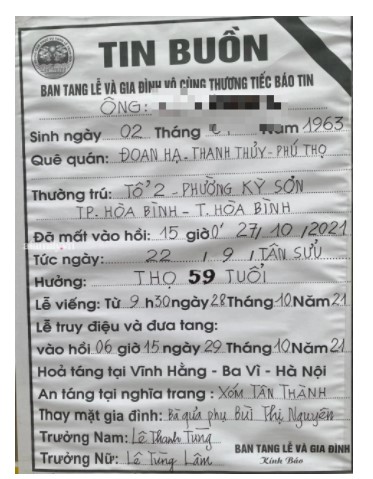 TIN BUỒN
BAN TANG LỄ VÀ GIA ĐÌNH VÔ CÙNG THƯƠNG TIẾC BÁO TIN
ÔNG:
Sinh ngày 02 Tháng Năm 1963
Quê quán: ĐOAN HẠ - THANH THỦY - PHÚ THỌ
Thường trú: TỔ 2 - PHƯỜNG KỲ SƠN
TP. HÒA BÌNH - T. HÒA BÌNH
Đã mất vào hồi: 15 giờ 0' 27/10/2021
Tức ngày: 22/9/TÂN SỬU
Hưởng: THỌ 59 TUỔI
Lễ viếng: Từ 9 h30 ngày 28 Tháng 10 Năm 21
Lễ truy điệu và đưa tang:
vào hồi 06 giờ 15 ngày 29 Tháng 10 Năm 21
Hoả táng tại Vĩnh Hằng - Ba Vì - Hà Nội
An táng tại nghĩa trang: XÓM TÂN THÀNH
Thay mặt gia đình: Bà quả phụ Bùi Thị Nguyên
Trưởng Nam: Lê Thanh Tùng
Trưởng Nữ: Lê Tùng Lâm
BAN TANG LỄ VÀ GIA ĐÌNH
Kính Báo